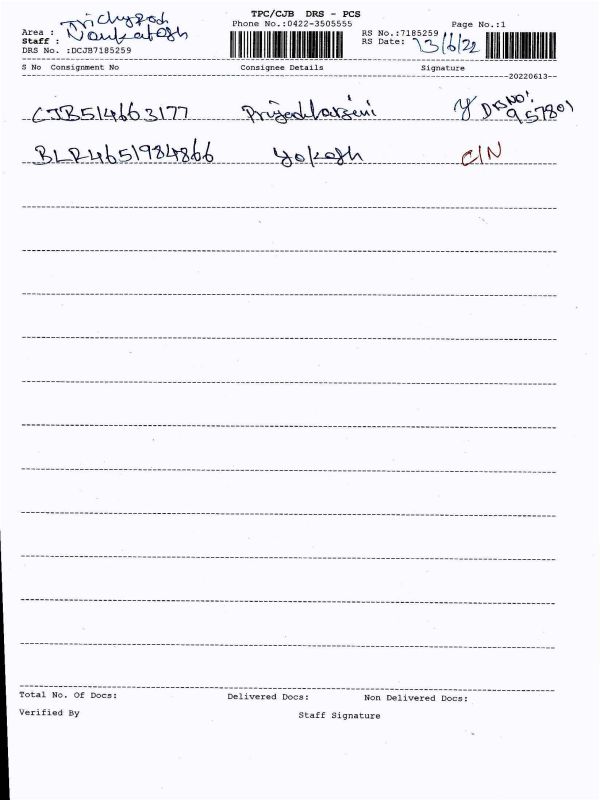 TPC/CJB DRS - PCS
Phone No.:0422-3505555
Page No.:1
Area : Trichyroad
Staff : Venkatesh
DRS No. :DCJB7185259
RS No.:7185259
RS Date: 13/6/22
S No Consignment No Consignee Details Signature
20220613
CJB514663177 Priyadharsini DRS NO:
957801
BLR4651984866 Yokesh C/N
Total No. Of Docs: Delivered Docs: Non Delivered Docs:
Verified By Staff Signature